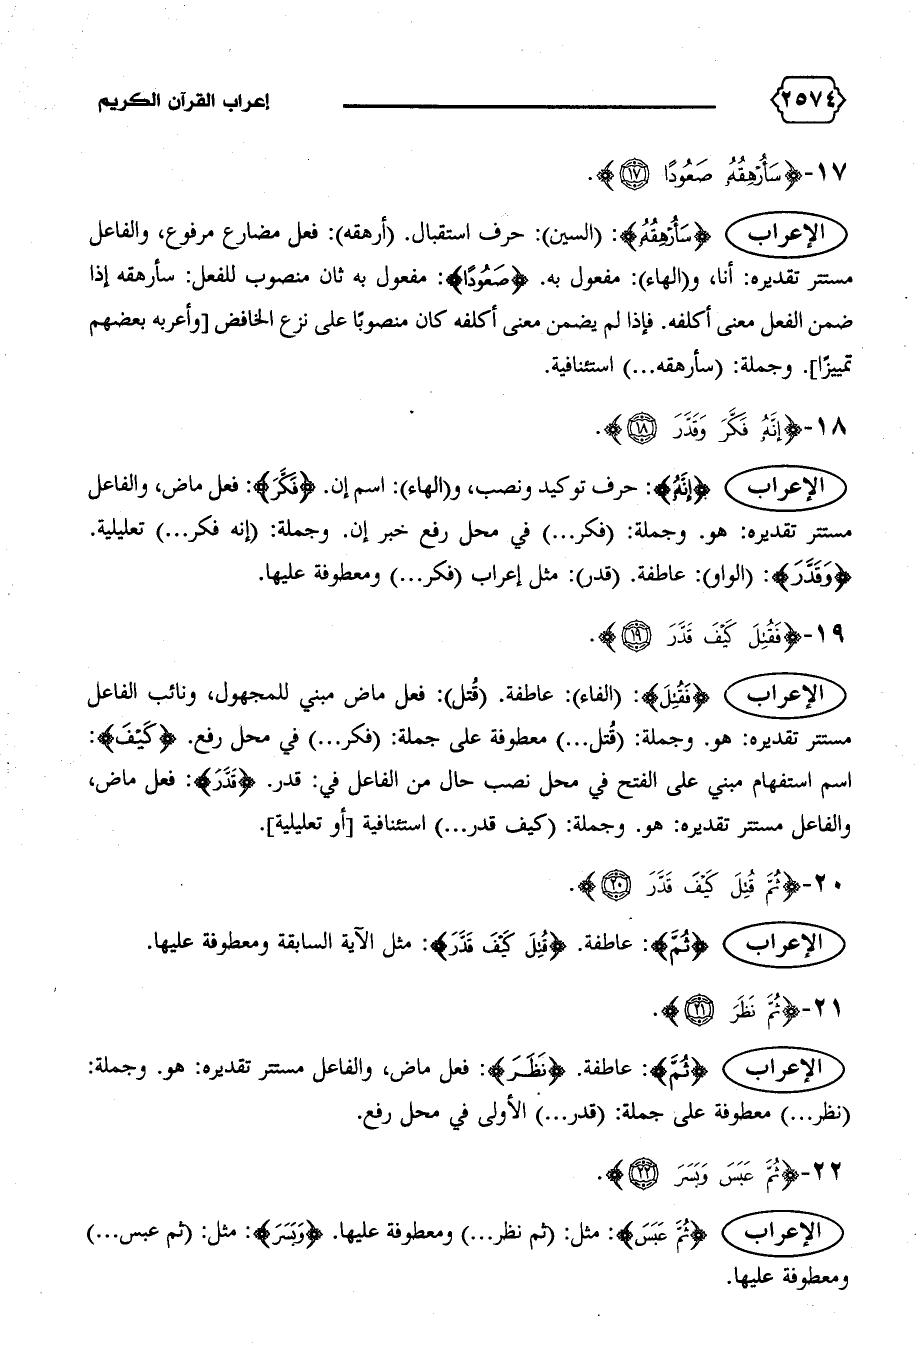 ٢٥٧٤ إعراب القرآن الكريم
١٧-﴿سَأُرْهِقُهُۥ صَعُودًا ١٧﴾.
الإعراب ﴿سَأُرْهِقُهُۥ﴾: (السين): حرف استقبال. (أرهقه): فعل مضارع مرفوع، والفاعل
مستتر تقديره: أنا، و(الهاء): مفعول به. ﴿صَعُودًا﴾: مفعول به ثان منصوب للفعل: سأرهقه إذا
ضمن الفعل معنى أكلفه. فإذا لم يضمن معنى أكلفه كان منصوبًا على نزع الخافض [وأعربه بعضهم
تمييزًا]. وجملة: (سأرهقه...) استئنافية.
١٨-﴿إِنَّهُۥ فَكَّرَ وَقَدَّرَ ١٨﴾.
الإعراب ﴿إِنَّهُۥ﴾: حرف توكيد ونصب، و(الهاء): اسم إن. ﴿فَكَّرَ﴾: فعل ماض، والفاعل
مستتر تقديره: هو. وجملة: (فكر...) في محل رفع خبر إن. وجملة: (إنه فكر...) تعليلية.
﴿وَقَدَّرَ﴾: (الواو): عاطفة. (قدر): مثل إعراب (فكر...) ومعطوفة عليها.
١٩-﴿فَقُتِلَ كَيْفَ قَدَّرَ ١٩﴾.
الإعراب ﴿فَقُتِلَ﴾: (الفاء): عاطفة. (قُتل): فعل ماض مبني للمجهول، ونائب الفاعل
مستتر تقديره: هو. وجملة: (قُتل...) معطوفة على جملة: (فكر...) في محل رفع. ﴿كَيْفَ﴾:
اسم استفهام مبني على الفتح في محل نصب حال من الفاعل في: قدر. ﴿قَدَّرَ﴾: فعل ماض،
والفاعل مستتر تقديره: هو. وجملة: (كيف قدر...) استئنافية [أو تعليلية].
٢٠-﴿ثُمَّ قُتِلَ كَيْفَ قَدَّرَ ٢٠﴾.
الإعراب ﴿ثُمَّ﴾: عاطفة. ﴿قُتِلَ كَيْفَ قَدَّرَ﴾: مثل الآية السابقة ومعطوفة عليها.
٢١-﴿ثُمَّ نَظَرَ ٢١﴾.
الإعراب ﴿ثُمَّ﴾: عاطفة. ﴿نَظَرَ﴾: فعل ماض، والفاعل مستتر تقديره: هو. وجملة:
(نظر...) معطوفة على جملة: (قدر...) الأولى في محل رفع.
٢٢-﴿ثُمَّ عَبَسَ وَبَسَرَ ٢٢﴾.
الإعراب ﴿ثُمَّ عَبَسَ﴾: مثل: (ثم نظر...) ومعطوفة عليها. ﴿وَبَسَرَ﴾: مثل: (ثم عبس...)
ومعطوفة عليها.